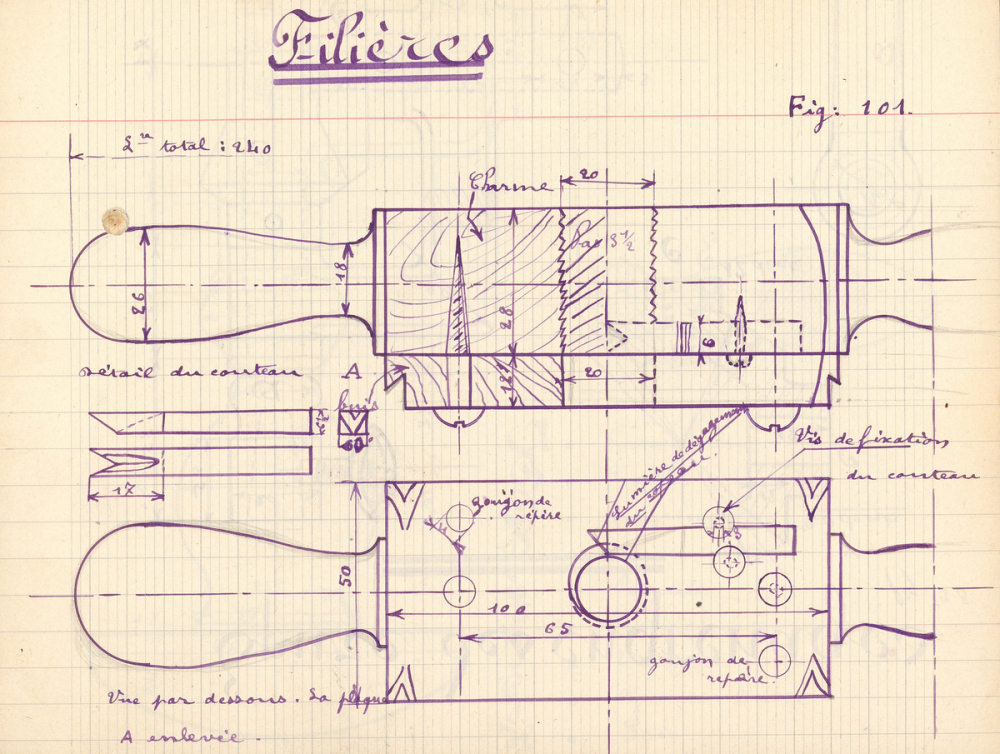 Filières
Fig: 101.
Lre total : 240
Charme
20
Pas 3 1/2
26
18
28
6
détail du couteau
A
buis
12
20
60°
17
Lumière de dégagement
du copeau.
Vis de fixation
du couteau
goujon de
repère
50
100
65
goujon de
repère.
Vue par dessous. La plaque
A enlevée.